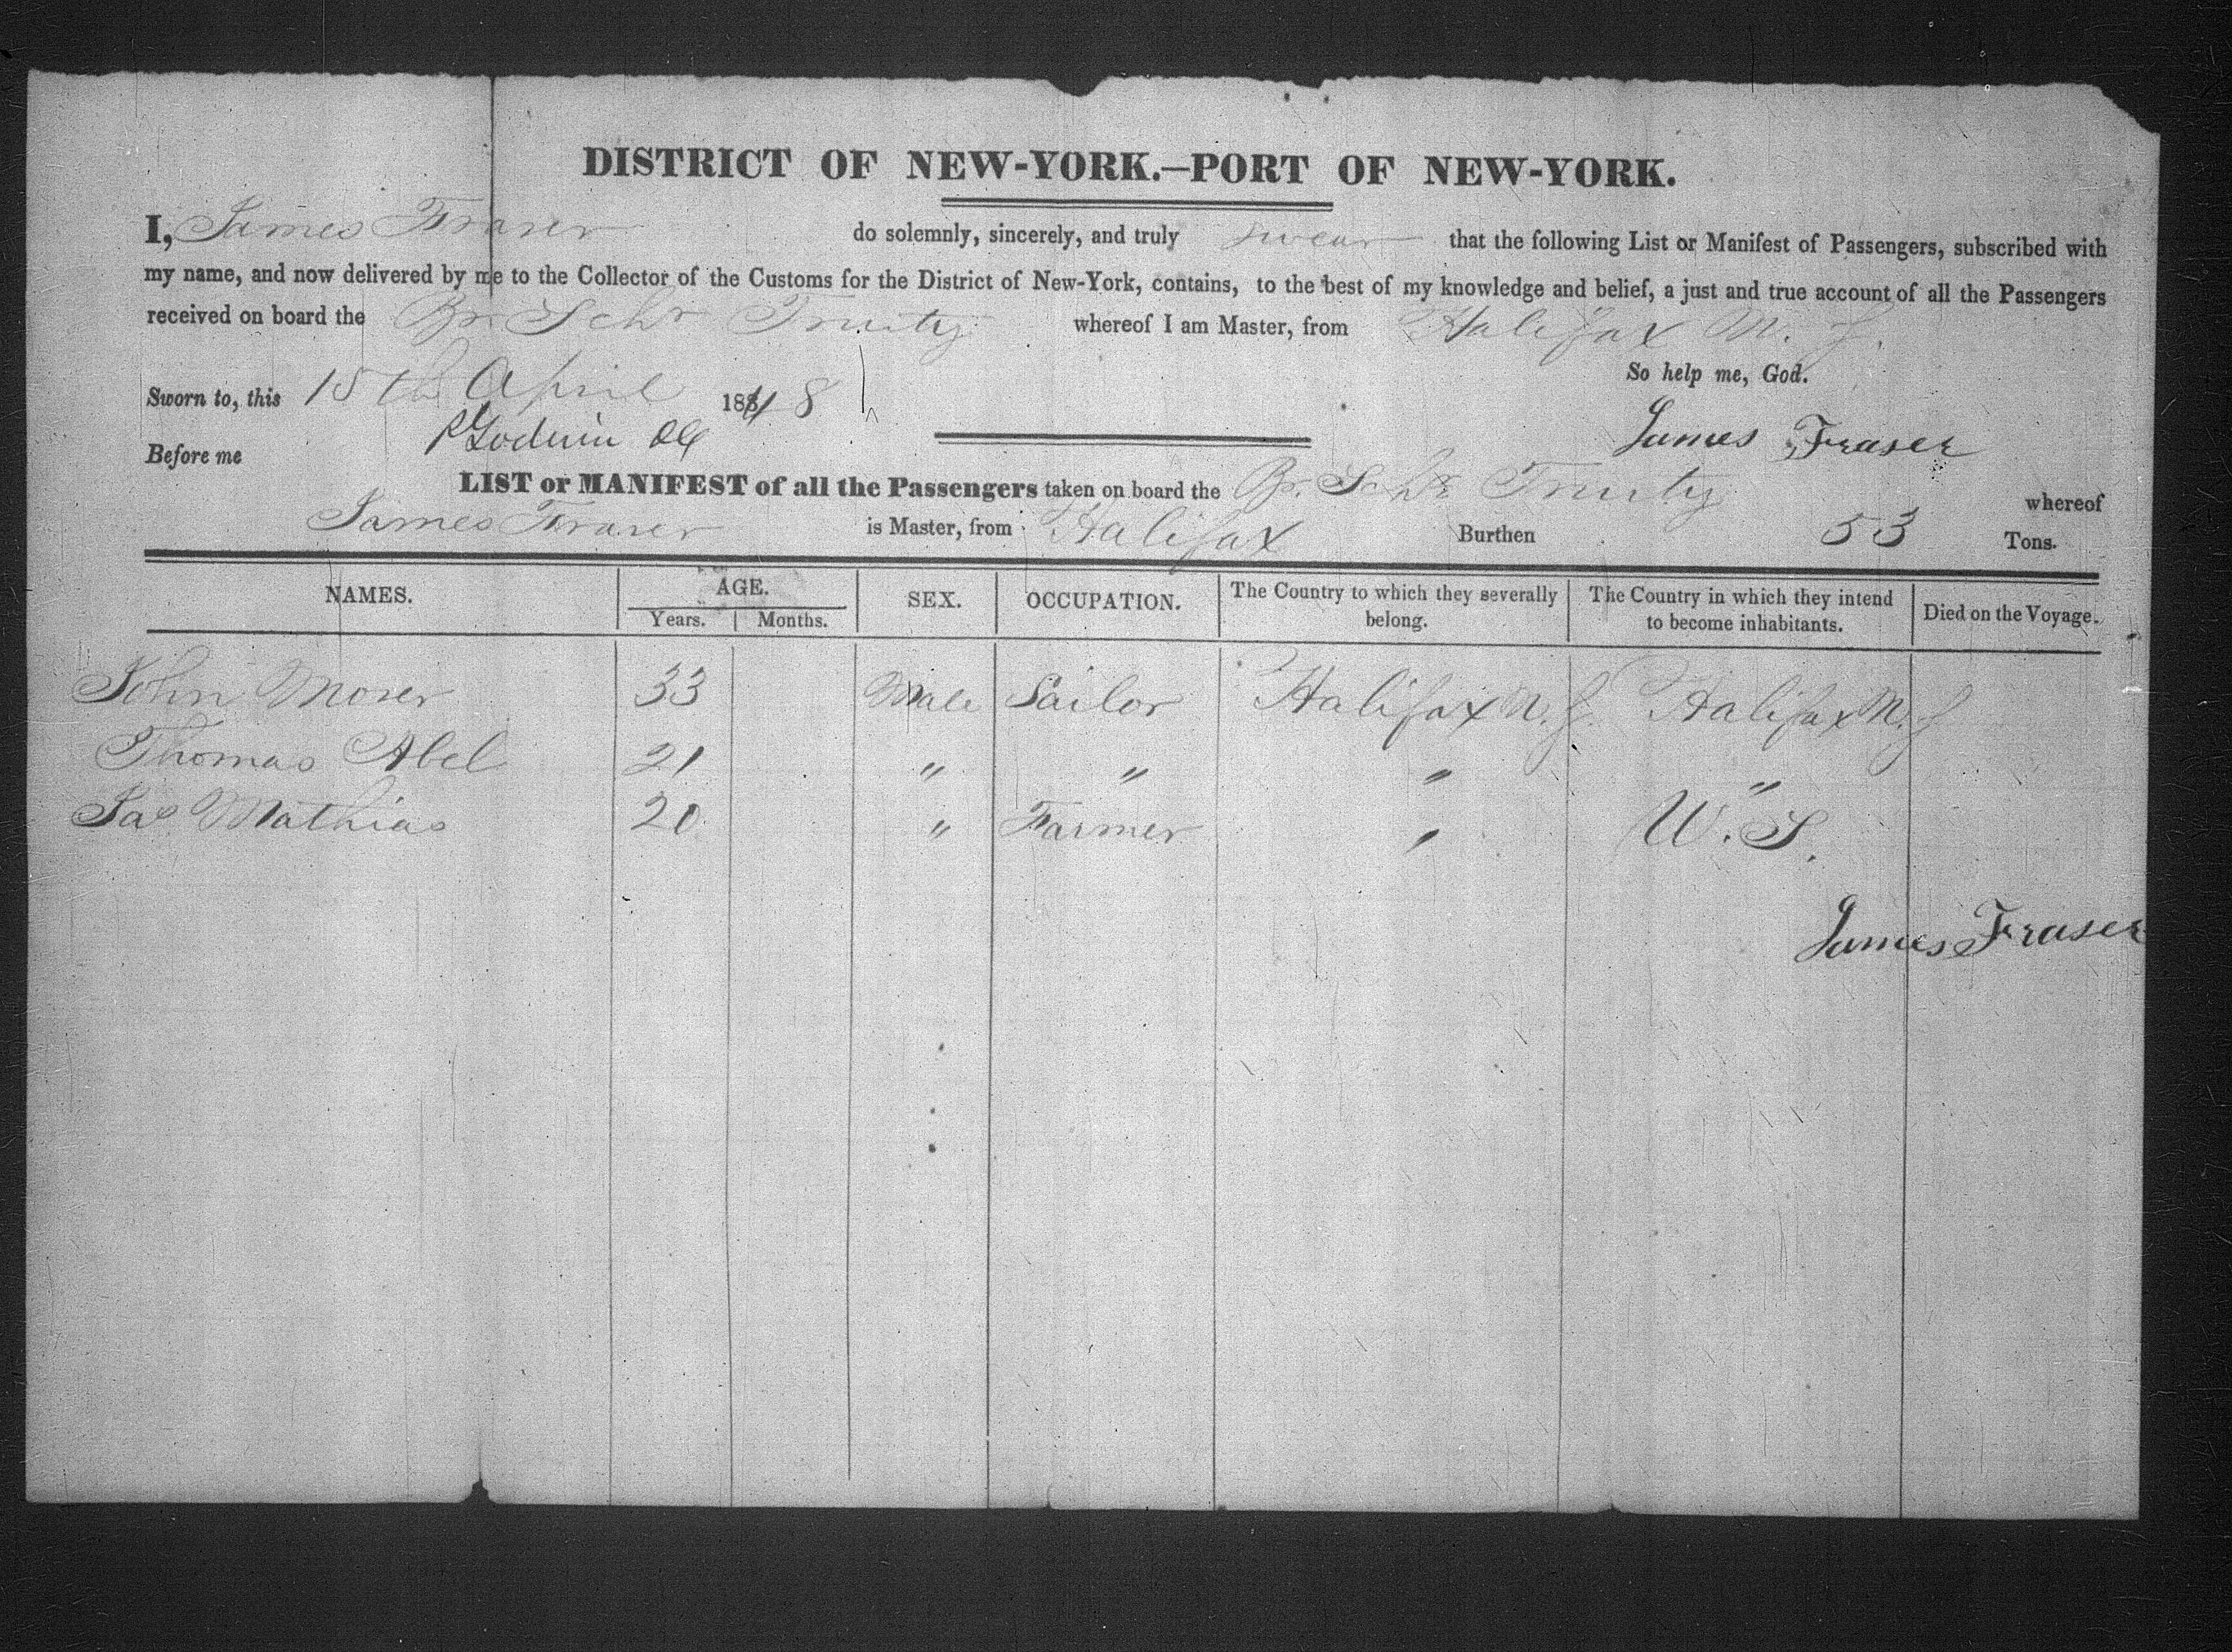 DISTRICT OF NEW-YORK.—PORT OF NEW-YORK.
I, James Fraser do solemnly, sincerely, and truly swear that the following List or Manifest of Passengers, subscribed with
my name, and now delivered by me to the Collector of the Customs for the District of New-York, contains, to the best of my knowledge and belief, a just and true account of all the Passengers
received on board the Br. Schr Trusty whereof I am Master, from Halifax N. S.
So help me, God.
Sworn to, this 15th April 1848
James Fraser
Before me Godwin
LIST or MANIFEST of all the Passengers taken on board the Br. Schr Trusty whereof
James Fraser is Master, from Halifax Burthen 53 Tons.
NAMES. AGE. SEX. OCCUPATION. The Country to which they severally belong. The Country in which they intend to become inhabitants. Died on the Voyage.
Years. Months.
John Moser 33 Male Sailor Halifax N. S. Halifax N. S
Thomas Abel 21 " " " "
Jas Mathias 20 " Farmer " U. S.
James Fraser